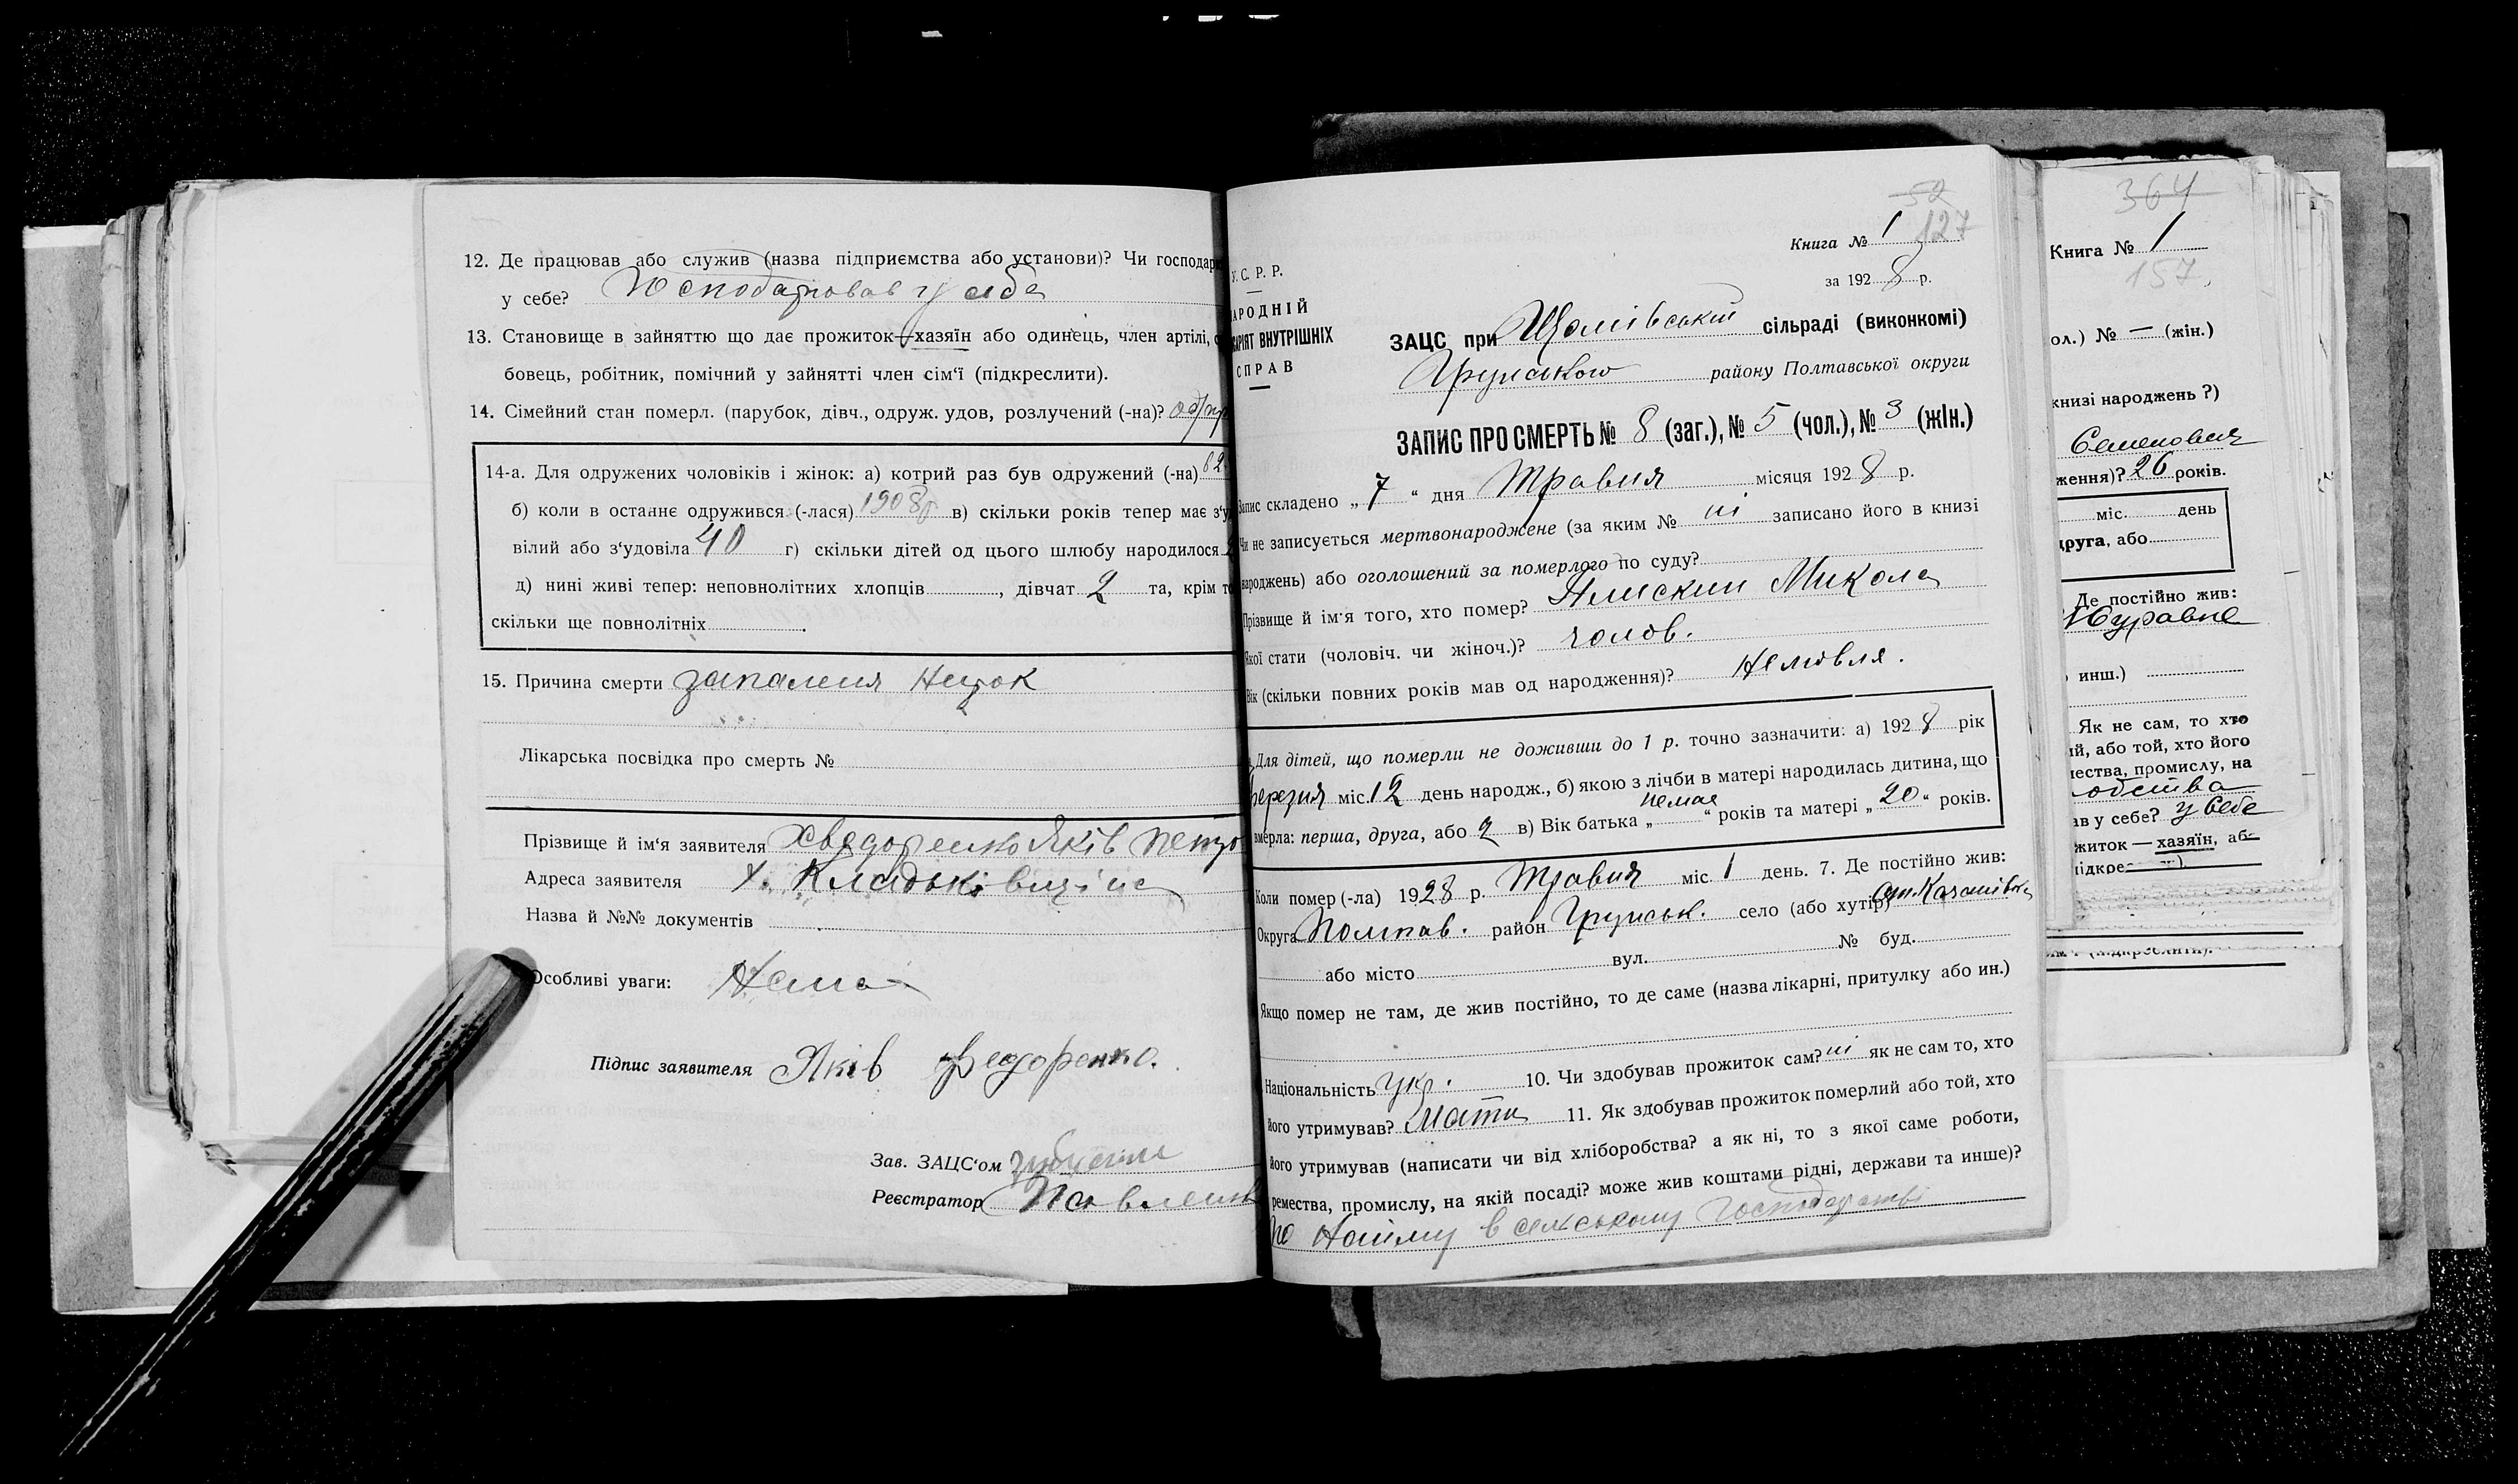 12. Де працював або служив (назва підприємства або установи)? Чи господар
у себе? Господарював у себе
13. Становище в зайняттю що дає прожиток—хазяїн або одинець, член артілі,
бовець, робітник, помічний у зайнятті член сім‘ї (підкреслити).
14. Сімейний стан померл. (парубок, дівч., одруж. удов, розлучений (-на)?
14-а. Для одружених чоловіків і жінок: а) котрий раз був одружений (-на)
б) коли в останнє одружився (-лася) 1908р в) скільки років тепер має з‘у
вілий або з‘удовіла 40 г) скільки дітей од цього шлюбу народилося
д) нині живі тепер: неповнолітних хлопців , дівчат 2 та, крім т
скільки ще повнолітніх
15. Причина смерти запалення
Лікарська посвідка про смерть №
Прізвище й ім‘я заявителя Хведоренко Яків Петро
Адреса заявителя х.
Назва й №№ документів
Особливі уваги: Нема
Підпис заявителя Яків Федоренко.
Зав. ЗАЦС‘ом
Реєстратор Павленко
52
127
Книга № 1
за 1928 р.
У. С. Р. Р.
АРОДНІЙ
АРІЯТ ВНУТРІШНІХ
СПРАВ
ЗАЦС при сільраді (виконкомі)
Грунського району Полтавської округи
ЗАПИС ПРО СМЕРТЬ № 8 (заг.), № 5 (чол.), № 3 (жін.)
Запис складено „7“ дня Травня місяця 1928 р.
Чи не записується мертвонароджене (за яким № ні записано його в книзі
народжень) або оголошений за померлого по суду?
Прізвище й ім‘я того, хто помер? Микола
Якої стати (чоловіч. чи жіноч.)? чолов.
Вік (скільки повних років мав од народження)? Немовля.
Для дітей, що померли не доживши до 1 р. точно зазначити: а) 1928 рік
березня міс. 12 день народж., б) якою з лічби в матері народилась дитина, що
вмерла: перша, друга, або 2 в) Вік батька „немає“ років та матері „20“ років.
Коли помер (-ла) 1928 р. Травня міс. 1 день. 7. Де постійно жив:
Округа Полтав. район Грунськ. село (або хутір)
або місто вул. № буд.
Якщо помер не там, де жив постійно, то де саме (назва лікарні, притулку або ин.)
Національність укр. 10. Чи здобував прожиток сам? ні як не сам то, хто
його утримував? Мати 11. Як здобував прожиток померлий або той, хто
його утримував (написати чи від хліборобства? а як ні, то з якої саме роботи,
ремества, промислу, на якій посаді? може жив коштами рідні, держави та инше)?
по найму в сельському господарстві
364
Книга № 1
157.
ол.) № — (жін.)
книзі народжень ?)
Семенович
ження)? 26 років.
міс. день
друга, або
Де постійно жив:
инш.)
Як не сам, то хто
ий, або той, хто його
мества, промислу, на
ав у себе? у себе
житок — хазяїн, аб-